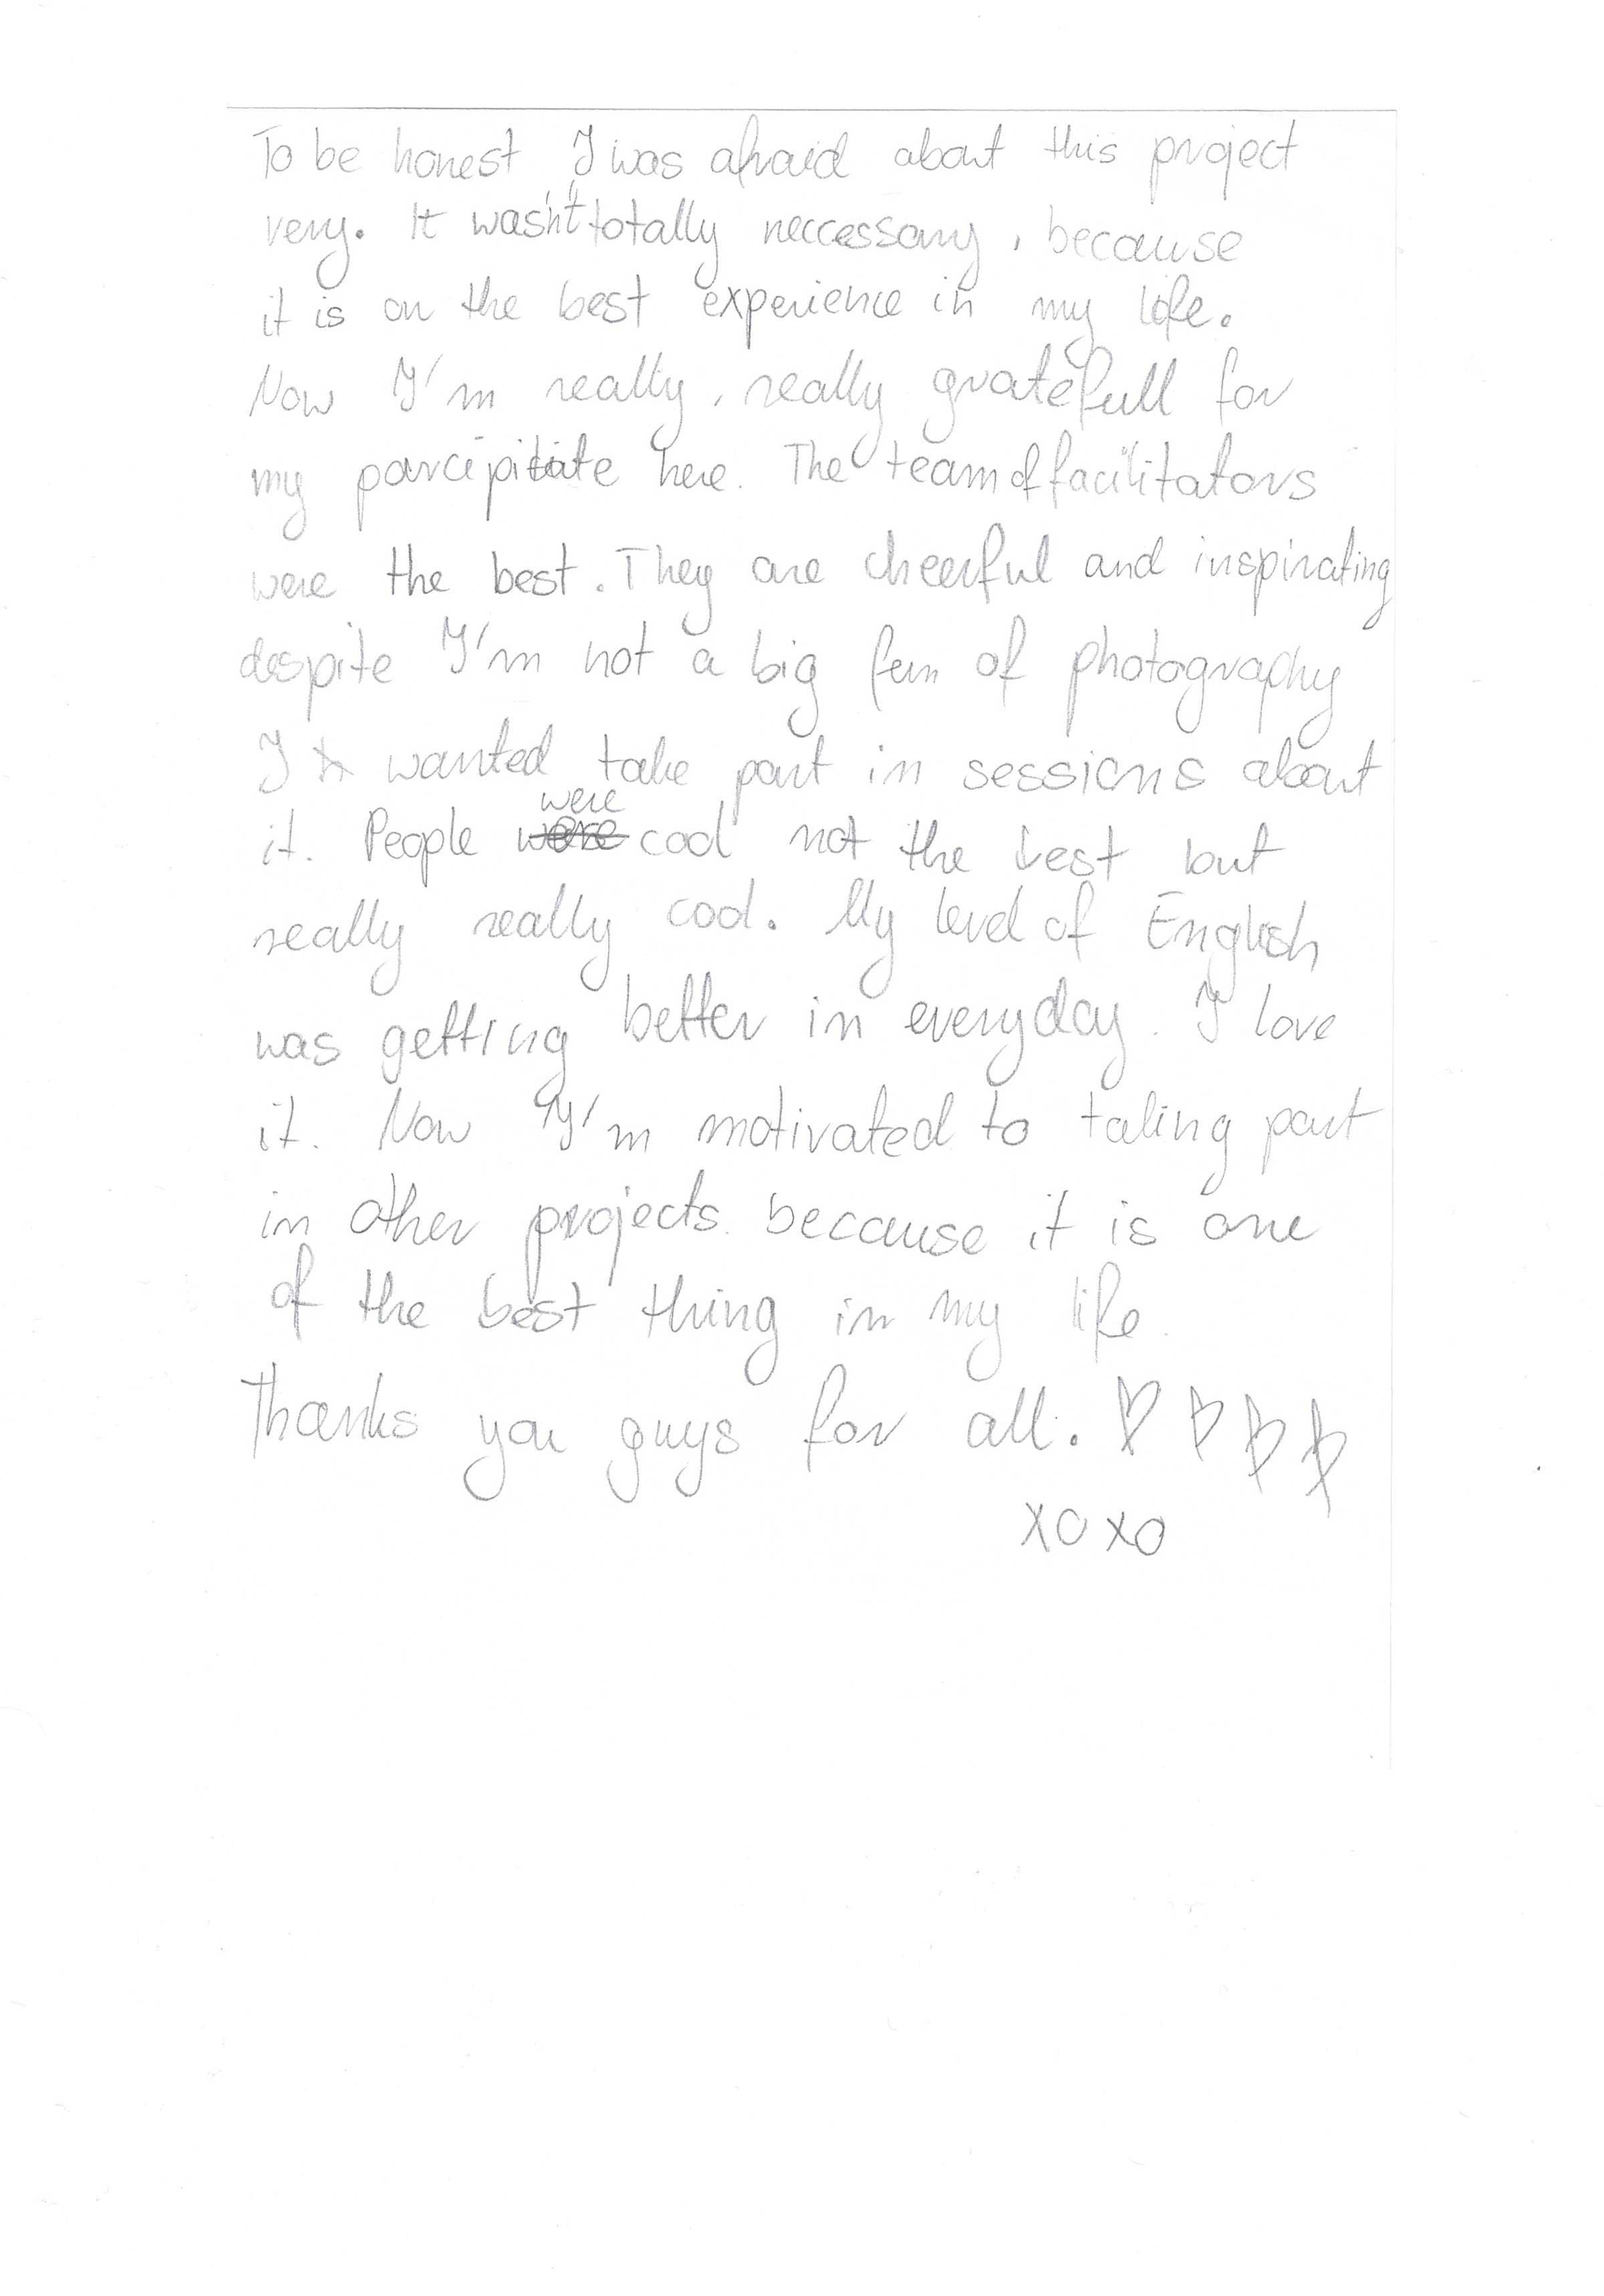 To be honest I was afraid about this project
very. It wasn't totally neccessary, because
it is on the best experience in my life.
Now I'm really, really gratefull for
my parcipitate here. The team of facilitators
were the best. They are cheerful and inspirating
despite I'm not a big fan of photography
I wanted take part in sessions about
it. People were cool not the best but
really really cool. My level of English
was getting better in everyday. I love
it. Now I'm motivated to taking part
in other projects because it is one
of the best thing in my life.
Thanks you guys for all.
XOXO